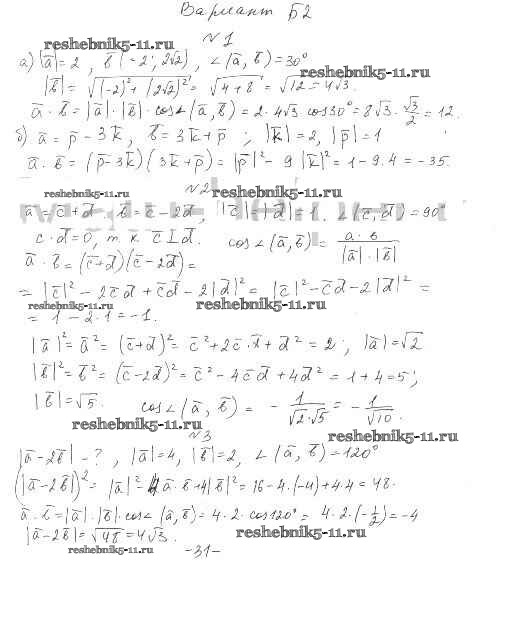 Вариант Б2
№1
reshebnik5-11.ru
а) |a̅| = 2, b̅{-2; 2√2}, ∠(a̅, b̅) = 30°
|b̅| = √((-2)² + (2√2)²) = √(4+8) = √12 = 4√3.
a̅ · b̅ = |a̅| · |b̅| · cos∠(a̅, b̅) = 2 · 4√3 cos30° = 8√3 · √3/2 = 12.
б) a̅ = p̅ - 3k̅, b̅ = 3k̅ + p̅; |k̅| = 2, |p̅| = 1
a̅ · b̅ = (p̅ - 3k̅)(3k̅ + p̅) = |p̅|² - 9|k̅|² = 1 - 9·4 = -35.
reshebnik5-11.ru №2 reshebnik5-11.ru
a̅ = c̅ + d̅ b̅ = c̅ - 2d̅, |c̅| = |d̅| = 1. ∠(c̅, d̅) = 90°
c · d̅ = 0, т.к. c̅ ⊥ d̅. cos∠(a̅, b̅) = a̅ · b̅ / |a̅| · |b̅|
a̅ · b̅ = (c̅ + d̅)(c̅ - 2d̅) =
= |c̅|² - 2c̅d̅ + c̅d̅ - 2|d̅|² = |c̅|² - c̅d̅ - 2|d̅|² =
reshebnik5-11.ru reshebnik5-11.ru
= 1 - 2·1 = -1.
|a̅|² = a̅² = (c̅ + d̅)² = c̅² + 2c̅·d̅ + d̅² = 2; |a̅| = √2
|b̅|² = b̅² = (c̅ - 2d̅)² = c̅² - 4c̅d̅ + 4d̅² = 1 + 4 = 5;
|b̅| = √5. cos∠(a̅, b̅) = - 1/(√2·√5) = - 1/√10.
reshebnik5-11.ru
№3 reshebnik5-11.ru
|a̅ - 2b̅| - ?, |a̅| = 4, |b̅| = 2, ∠(a̅, b̅) = 120°
(|a̅ - 2b̅|)² = |a̅|² - 4a̅·b̅ + 4|b̅|² = 16 - 4·(-4) + 4·4 = 48.
a̅ · b̅ = |a̅| · |b̅| · cos∠(a̅, b̅) = 4·2·cos120° = 4·2·(-1/2) = -4
|a̅ - 2b̅| = √48 = 4√3. reshebnik5-11.ru
reshebnik5-11.ru -31-